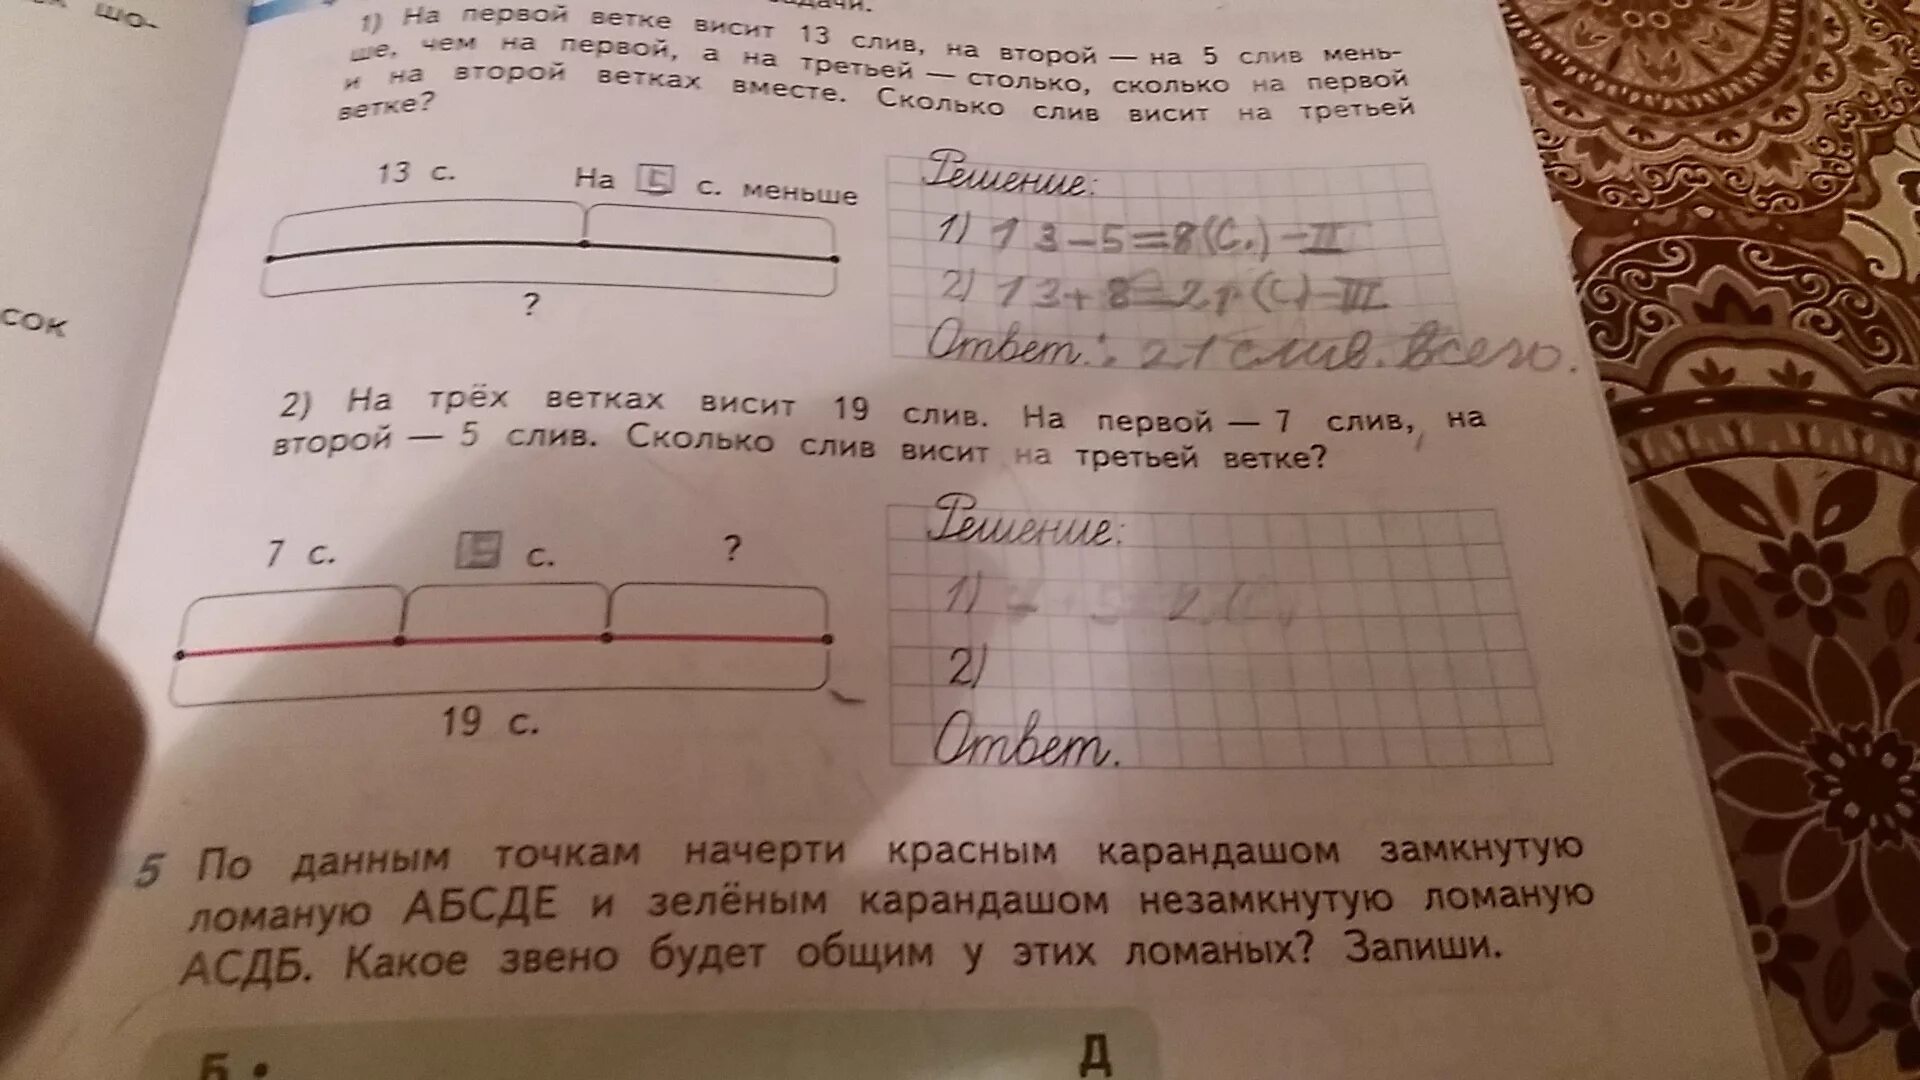 шо-
сок
1) На первой ветке висит 13 слив, на второй — на 5 слив мень-
ше, чем на первой, а на третьей — столько, сколько на первой
и на второй ветках вместе. Сколько слив висит на третьей
ветке?
13 с. На 5 с. меньше
?
Решение:
1) 13-5=8(с.)-II
2) 13+8=21(с)-III
Ответ: 21 слив. всего.
2) На трёх ветках висит 19 слив. На первой — 7 слив, на
второй — 5 слив. Сколько слив висит на третьей ветке?
7 с. 5 с. ?
19 с.
Решение:
1)
2)
Ответ.
5 По данным точкам начерти красным карандашом замкнутую
ломаную АБСДЕ и зелёным карандашом незамкнутую ломаную
АСДБ. Какое звено будет общим у этих ломаных? Запиши.
Б Д